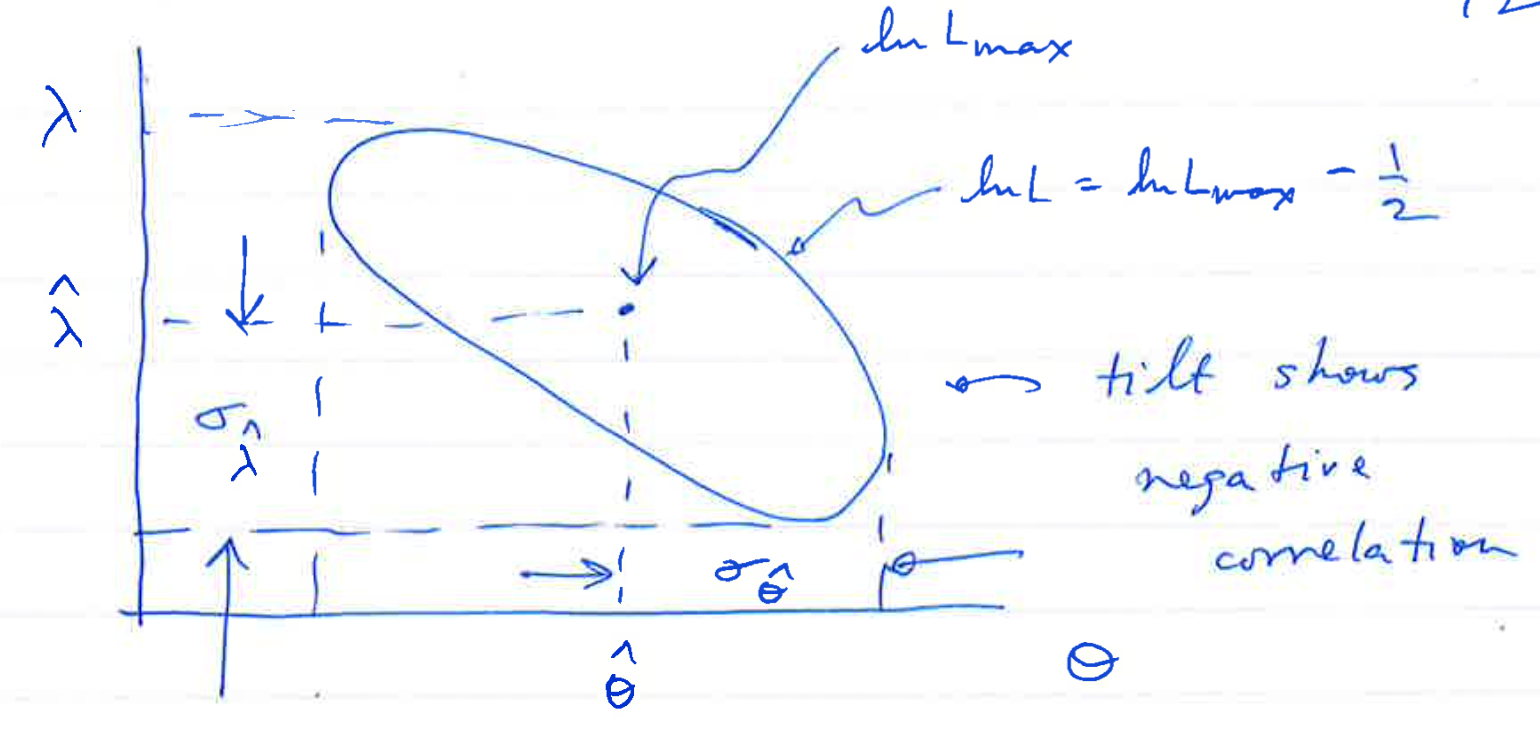 ln Lmax
λ
ln L = ln Lmax - 1/2
λ̂
tilt shows
negative
correlation
σ_λ̂
σ_θ̂
θ̂
θ